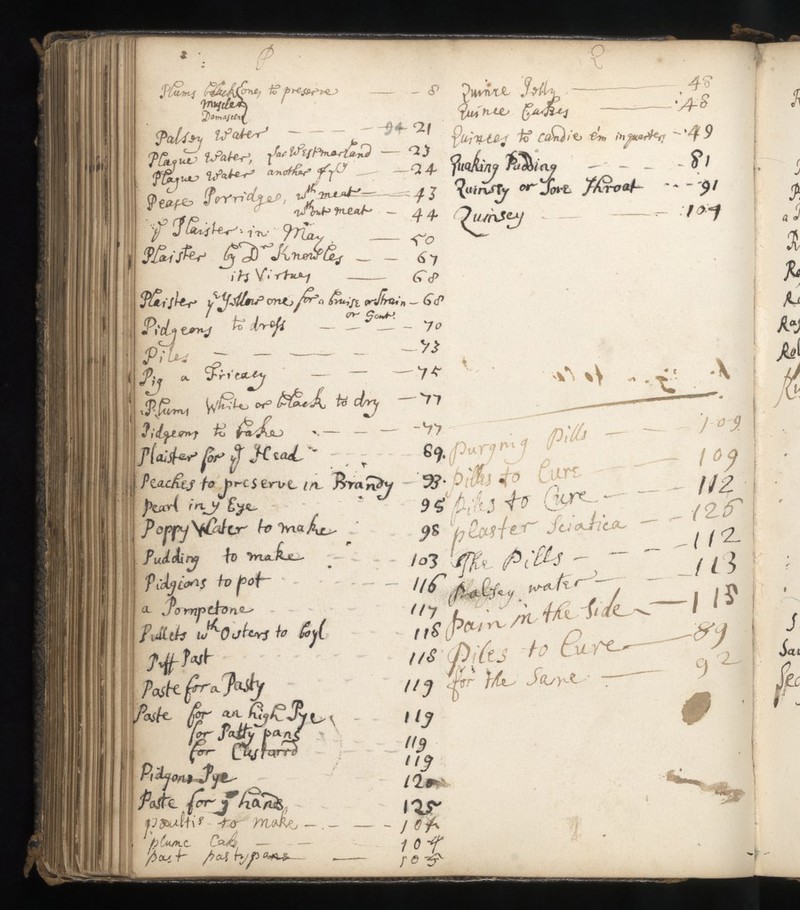 P
Plums black ones to preserve — 8
Muscles
Damascen
Palsey Water — 94 21
Plague Water, Westmorland — 23
Plague Water another of yᵉ — 24
Pease Porridge, wᵗʰ meat — 43
wᵗʰout meat - 44
yᵉ Plaister in May — 50
Plaister by Dʳ Knowles — 67
its Virtues — 68
Plaister yᵉ Yellow one for a bruise or Strain - 68
or Gout
Pidgeons to dress — 70
Piles — 73
Pig a Fricacy — 75
Plums White or black to dry — 77
Pidgeons to bake — 77
Plaister for yᵉ Head 89.
Peaches to preserve in Brandy - 93.
pearl in y Eye 95
Poppy Water to make 98
Pudding to make 103
Pidgions to pot 116
a Pompetone 117
Pullets wᵗʰ Oisters to boyl 118
Puff Past 118
Paste for a Pasty 119
Paste for an high Pye 119
for Patty pans 119
for Custard 119
Pidgons Pye 120
Paste for yᵉ hands 125
poultis to make - 104
plume Cake 104
past pastypans — 105
Q
Quince Jelly — 48
Quince Cakes — 48
Quinces to candie em in quarters - 49
Quaking Pudding - 81
Quinsey or Sore Throat - 91
Quinsey — 104
Purgnig Pills — 109
Pilles to Cure — 109
Piles to Cure — 112
plaster Sciatica — 126
The Pills — 112
Palsey water — 113
Pain in the Side — 115
Piles to Cure — 89
for the Same — 92